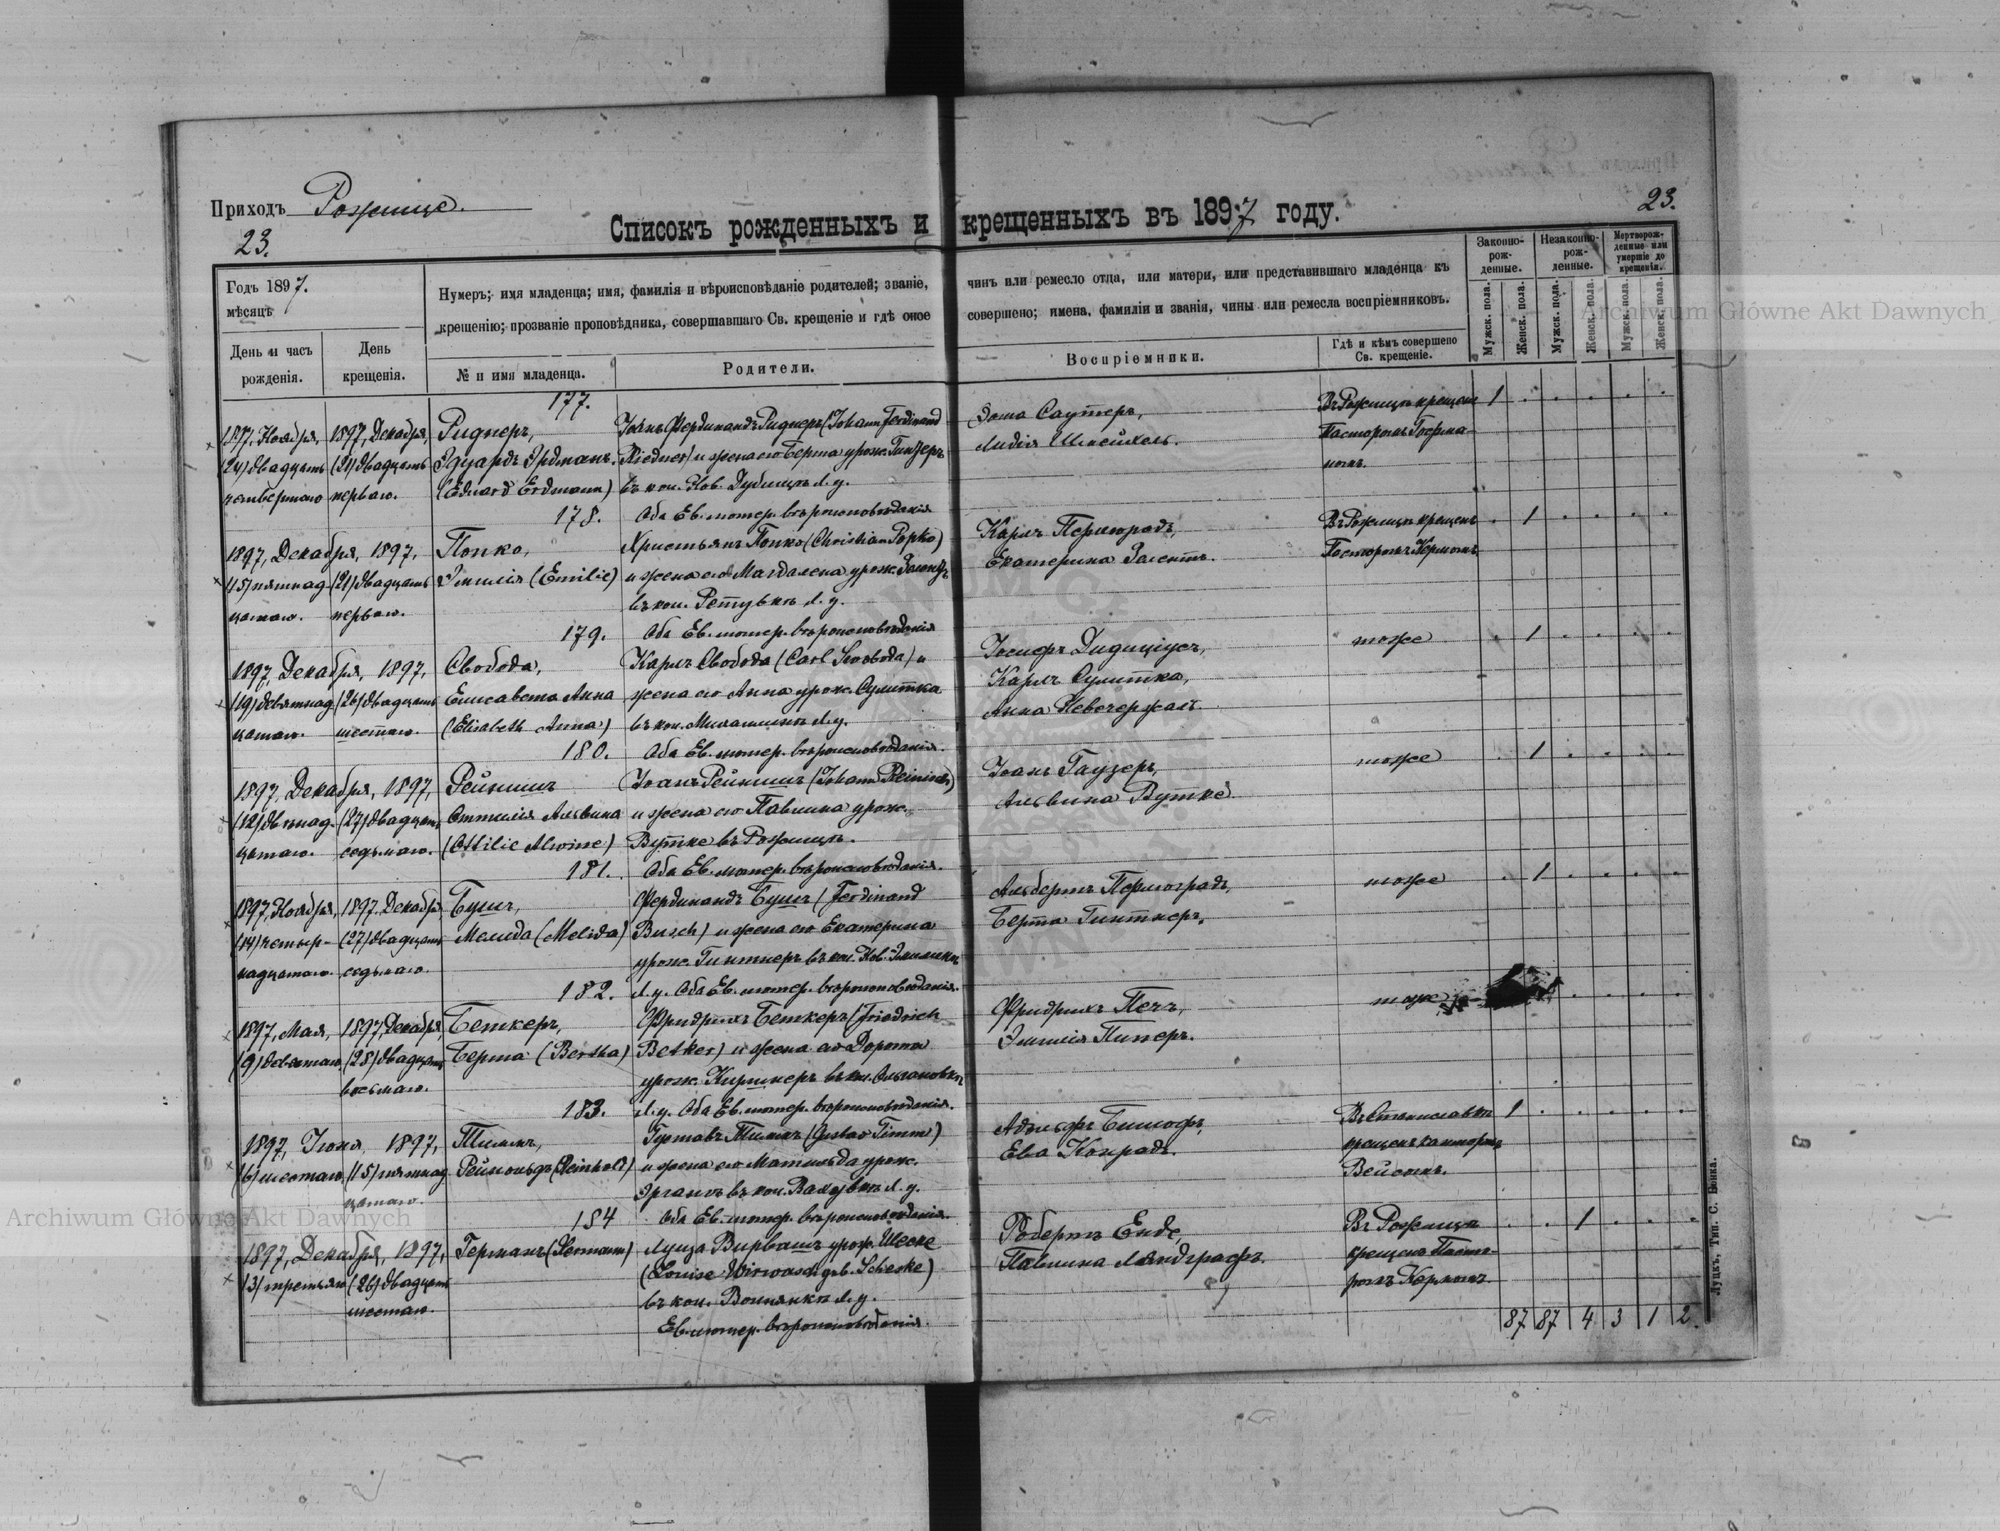 Приходъ Рожище.
23.
Списокъ рожденныхъ и крещенныхъ въ 1897 году.
23.
Годъ 1897.
мѣсяцъ
День и часъ рожденія.
День крещенія.
Нумеръ; имя младенца; имя, фамилія и вѣроисповѣданіе родителей; званіе, чинъ или ремесло отца, или матери, или представившаго младенца къ
крещенію; прозваніе проповѣдника, совершавшаго Св. крещеніе и гдѣ оное совершено; имена, фамиліи и званія, чины или ремесла воспріемниковъ.
№ и имя младенца.
Родители.
Воспріемники.
Гдѣ и кѣмъ совершено Св. крещеніе.
Законно-рож-денные.
Незаконно-рож-денные.
Мертворож-денные или умершіе до крещенія.
Мужск. пола.
Женск. пола.
Мужск. пола.
Женск. пола.
Мужск. пола.
Женск. пола.
177.
1897, Ноября, 1897, Декабря, Ридперъ, Іоганъ Фердинандъ Ридперъ (Johann Ferdinand
(24) двадцать (21) двадцать Эдуардъ Эрдманъ. и жена его Берта урожд.
четвертаго перваго. (Eduard Erdmann) въ кол. Нов. Дубищъ Л. у.
Оба Ев. лютер. вѣроисповѣданія
Саутеръ,
Лидія
Въ Рожищѣ крещенъ
Пасторомъ
1
178.
1897, Декабря, 1897, Попко, Христьянъ Попко (Christian Popko)
(15) пятнад- (21) двадцать Эмилія (Emilie) и жена его Магдалена урож.
цатаго. перваго. въ кол. Л. у.
Оба Ев. лютер. вѣроисповѣданія
Карлъ
Екатерина
Въ Рожищѣ крещенъ
Пасторомъ Керномъ
1
179.
1897, Декабря, 1897, Свобода, Карлъ Свобода (Carl Swoboda) и
(19) девятнад- (26) двадцать Елисавета Анна жена его Анна урож. Сулитка
цатаго. шестаго. (Elisabeth Anna) въ кол. Л. у.
Оба Ев. лютер. вѣроисповѣданія.
Іосифъ
Карлъ Сулитка,
Анна
тоже
1
180.
1897, Декабря, 1897, Рейнишъ Іоганъ Рейнишъ (Johann Reinisch)
(12) двѣнад- (27) двадцать Оттилія Альвина и жена его Павлина урож.
цатаго. седьмаго. (Ottilie Alwine) Вутке въ Рожищѣ.
Оба Ев. лютер. вѣроисповѣданія.
Іоганъ Гаузеръ,
Альвина Вутке
тоже
1
181.
1897, Ноября, 1897, Декабря Бушъ, Фердинандъ Бушъ (Ferdinand
(14) четыр- (27) двадцать Мелида (Melida) Busch) и жена его Екатерина
надцатаго. седьмаго. урож. Гинтнеръ въ кол. Нов.
Л. у. Оба Ев. лютер. вѣроисповѣданія.
Альбертъ
Берта Гинтнеръ.
тоже
1
182.
1897, Мая, 1897, Декабря, Беткеръ, Фридрихъ Беткеръ (Friedrich
(9) девятаго (28) двадцать Берта (Bertha) Betker) и жена его Дорота
восьмаго. урож. Киршнеръ въ кол.
Л. у. Оба Ев. лютер. вѣроисповѣданія.
Фридрихъ Печъ,
Эмилія Пиперъ.
тоже
183.
1897, Іюня, 1897, Тиммъ, Густавъ Тиммъ (Gustav Timm)
(6) шестаго (15) пятнад- Рейнольдъ (Reinhold) и жена его Матильда урож.
цатаго. въ кол. Л. у.
Оба Ев. лютер. вѣроисповѣданія.
Адольфъ Бишофъ,
Ева Конрадъ.
Въ Станиславкѣ
крещенъ канторомъ
1
184
1897, Декабря, 1897, Германъ (Hermann) Луиза Вирвашъ урож. Шеске
(3) третьяго (26) двадцать (Louise Wirwasch geb. Scheske)
шестаго. въ кол. Л. у.
Ев. лютер. вѣроисповѣданія.
Робертъ Енде,
Павлина Ландграфъ.
Въ Рожищѣ
крещенъ Пасто-
ромъ Керномъ
1
87 87 4 3 1 2.
Луцкъ, Тип. С. Бонка.
Archiwum Główne Akt Dawnych
Archiwum Główne Akt Dawnych